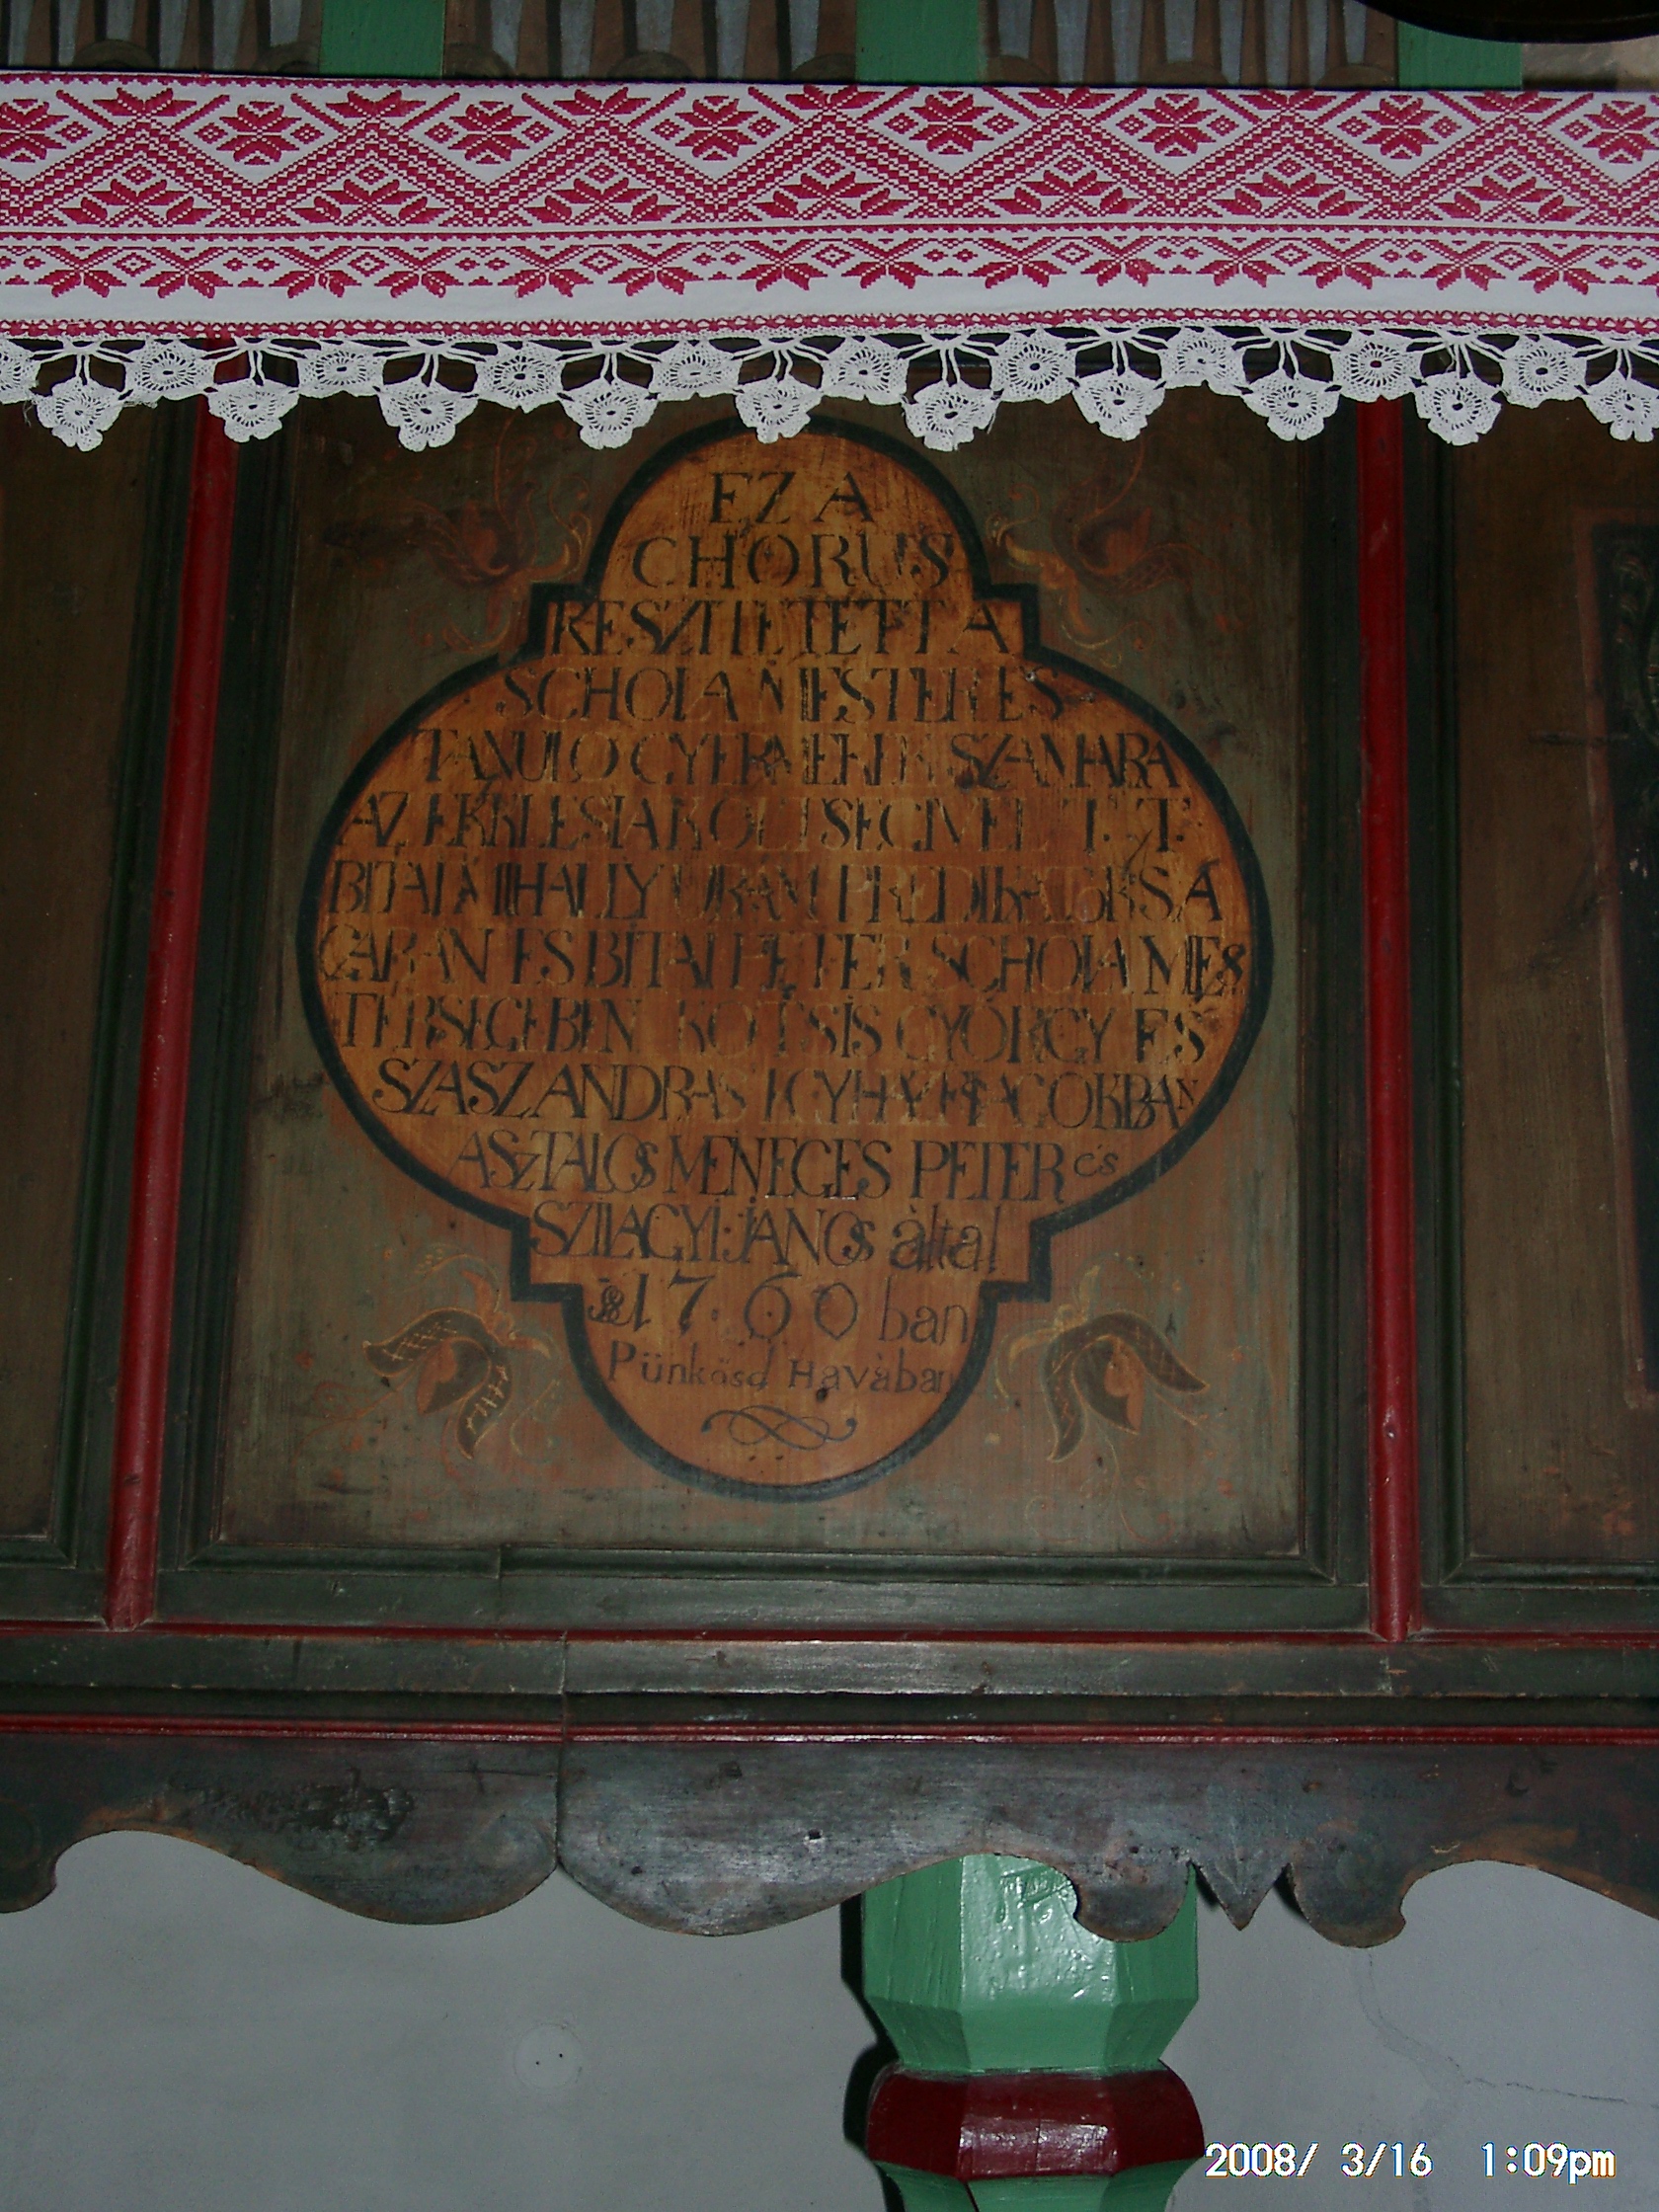 EZ A
CHORUS
KESZITETETT A
SCHOLA MESTER ES
TANULO GYERMEKEK SZAMARA
AZ EKKLESIA KOLTSEGIVEL T. T.
BITAI MIHALLY URAM PREDIKATORSA
GABAN ES BITAI PETER SCHOLA MES
TERSEGEBEN KOTSIS GYORGY ES
SZASZ ANDRAS EGYHAZFIAGOKBAN
ASZTALOS MENEGES PETER és
SZILAGYI: JANOS àltal
1760 ban
Pünkösd Havàban
2008/ 3/16 1:09pm